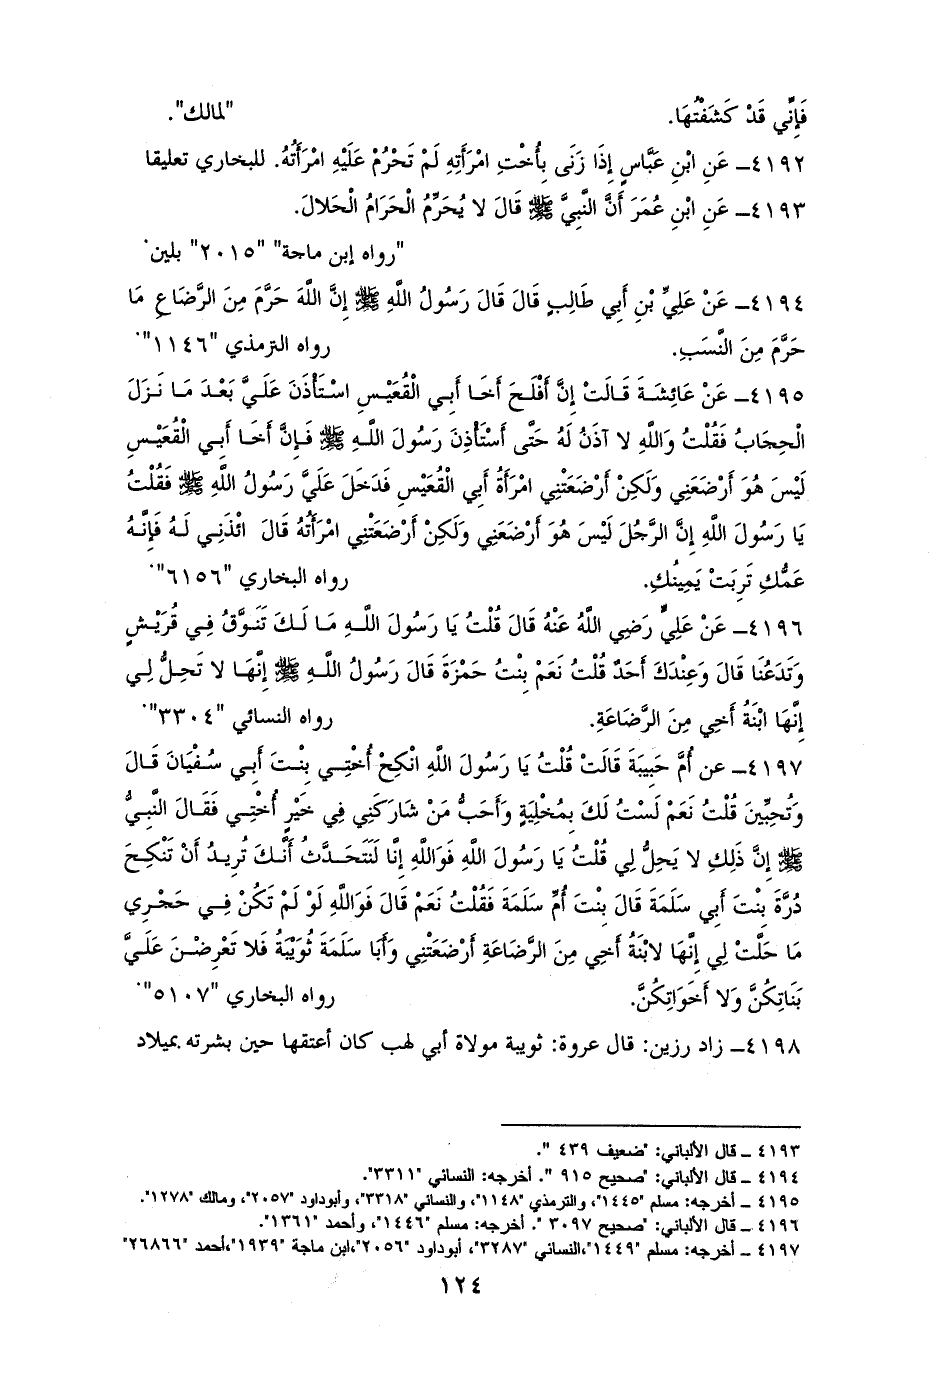 فَإِنِّي قَدْ كَشَفْتُهَا. "لمالك".
٤١٩٢ــ عَنِ ابْنِ عَبَّاسٍ إِذَا زَنَى بِأُخْتِ امْرَأَتِهِ لَمْ تَحْرُمْ عَلَيْهِ امْرَأَتُهُ. للبخاري تعليقا
٤١٩٣ــ عَنِ ابْنِ عُمَرَ أَنَّ النَّبِيَّ ﷺ قَالَ لا يُحَرِّمُ الْحَرَامُ الْحَلالَ.
"رواه إبن ماجة" "٢٠١٥" بلين.
٤١٩٤ــ عَنْ عَلِيِّ بْنِ أَبِي طَالِبٍ قَالَ قَالَ رَسُولُ اللَّهِ ﷺ إِنَّ اللَّهَ حَرَّمَ مِنَ الرَّضَاعِ مَا
حَرَّمَ مِنَ النَّسَبِ. رواه الترمذي "١١٤٦".
٤١٩٥ــ عَنْ عَائِشَةَ قَالَتْ إِنَّ أَفْلَحَ أَخَا أَبِي الْقُعَيْسِ اسْتَأْذَنَ عَلَيَّ بَعْدَ مَا نَزَلَ
الْحِجَابُ فَقُلْتُ وَاللَّهِ لا آذَنُ لَهُ حَتَّى أَسْتَأْذِنَ رَسُولَ اللَّهِ ﷺ فَإِنَّ أَخَا أَبِي الْقُعَيْسِ
لَيْسَ هُوَ أَرْضَعَنِي وَلَكِنْ أَرْضَعَتْنِي امْرَأَةُ أَبِي الْقُعَيْسِ فَدَخَلَ عَلَيَّ رَسُولُ اللَّهِ ﷺ فَقُلْتُ
يَا رَسُولَ اللَّهِ إِنَّ الرَّجُلَ لَيْسَ هُوَ أَرْضَعَنِي وَلَكِنْ أَرْضَعَتْنِي امْرَأَتُهُ قَالَ ائْذَنِي لَهُ فَإِنَّهُ
عَمُّكِ تَرِبَتْ يَمِينُكِ. رواه البخاري "٦١٥٦".
٤١٩٦ــ عَنْ عَلِيٍّ رَضِي اللَّهُ عَنْهُ قَالَ قُلْتُ يَا رَسُولَ اللَّهِ مَا لَكَ تَنَوَّقُ فِي قُرَيْشٍ
وَتَدَعُنَا قَالَ وَعِنْدَكَ أَحَدٌ قُلْتُ نَعَمْ بِنْتُ حَمْزَةَ قَالَ رَسُولُ اللَّهِ ﷺ إِنَّهَا لا تَحِلُّ لِي
إِنَّهَا ابْنَةُ أَخِي مِنَ الرَّضَاعَةِ. رواه النسائي "٣٣٠٤".
٤١٩٧ــ عن أُمِّ حَبِيبَةَ قَالَتْ قُلْتُ يَا رَسُولَ اللَّهِ انْكِحْ أُخْتِي بِنْتَ أَبِي سُفْيَانَ قَالَ
وَتُحِبِّينَ قُلْتُ نَعَمْ لَسْتُ لَكَ بِمُخْلِيَةٍ وَأَحَبُّ مَنْ شَارَكَنِي فِي خَيْرٍ أُخْتِي فَقَالَ النَّبِيُّ
ﷺ إِنَّ ذَلِكِ لا يَحِلُّ لِي قُلْتُ يَا رَسُولَ اللَّهِ فَوَاللَّهِ إِنَّا لَنَتَحَدَّثُ أَنَّكَ تُرِيدُ أَنْ تَنْكِحَ
دُرَّةَ بِنْتَ أَبِي سَلَمَةَ قَالَ بِنْتَ أُمِّ سَلَمَةَ فَقُلْتُ نَعَمْ قَالَ فَوَاللَّهِ لَوْ لَمْ تَكُنْ فِي حَجْرِي
مَا حَلَّتْ لِي إِنَّهَا لابْنَةُ أَخِي مِنَ الرَّضَاعَةِ أَرْضَعَتْنِي وَأَبَا سَلَمَةَ ثُوَيْبَةُ فَلا تَعْرِضْنَ عَلَيَّ
بَنَاتِكُنَّ وَلا أَخَوَاتِكُنَّ. رواه البخاري "٥١٠٧".
٤١٩٨ــ زاد رزين: قال عروة: ثويبة مولاة أبي لهب كان أعتقها حين بشرته بميلاد
٤١٩٣ ــ قال الألباني: "ضعيف ٤٣٩ ".
٤١٩٤ ــ قال الألباني: "صحيح ٩١٥ ". أخرجه: النسائي "٣٣١١".
٤١٩٥ ــ أخرجه: مسلم "١٤٤٥"، والترمذي "١١٤٨"، والنسائي "٣٣١٨"، وأبوداود "٢٠٥٧"، ومالك "١٢٧٨".
٤١٩٦ ــ قال الألباني: "صحيح ٣٠٩٧ ". أخرجه: مسلم "١٤٤٦"، وأحمد "١٣٦١".
٤١٩٧ ــ أخرجه: مسلم "١٤٤٩"،النسائي "٣٢٨٧"، أبوداود "٢٠٥٦"،ابن ماجة "١٩٣٩"،أحمد "٢٦٨٦٦"
١٢٤